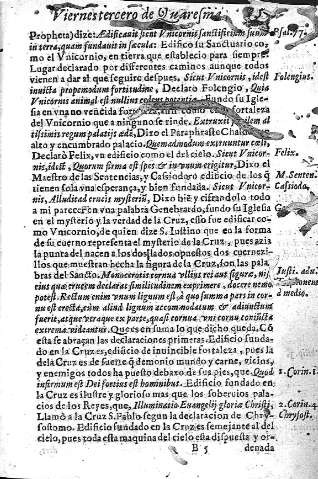 Viernes tercero de Quaresma 5
Propheta) dize: Edificauit sicut Vnicornis sanctificium suum Psal. 77.
in terra, quam fundauit in sæcula: Edifico su Sanctuario co-
mo el Vnicornio, en tierra que establecio para siempre.
Lugar declarado por differentes caminos aunque todos
vienen a dar al que seguire despues. Sicut Vnicornis, idest Folengius.
inuicta propemodum fortitudine, Declarò Folengio, Quia
Vnicornis animal est nullius cedens potentiæ. Fundo su Igle-
sia en vna no vencida fortaleza, como en la fortaleza
del Vnicornio que a ninguno se rinde, Extruxit
tissimis regum palatijs ædē, Dixo el Paraphraste Chaldeo
alto y encumbrado palacio. Quemadmodum exuntur
Declarò Felix, vn edificio como el del cielo. Sicut Vnicor- Felix.
nis, idest, Quorum firma est spes & in vnum erigitur, Dixo el
Maestro de las Sentencias, y Casiodoro edificio de los q̃ M. Senten.
tienen sola vna esperança, y bien fundada. Sicut Vnicor- Casiodo.
nis, Alludit ad crucis mysteriū, Dixo biē, y cifrandolo todo
a mi parecer en vna palabra Genebrardo, fundo su Iglesia
en el mysterio y la verdad de la Cruz, esso fue edificar co-
mo Vnicornio, de quien dize S. Iustino que en la forma
de su cuerno representa el mysterio de la Cruz, pues azia
la punta del nacen a los dos lados opuestos dos cuernezi-
llos que muestran hecha la figura de la Cruz, son las pala-
bras del Sancto. Monocerotis cornua vllius rei aut figuræ, ni- Iusti. adu.
si eius quæ crucem declarat similitudinem exprimere, docere nemo
potest. Rectum enim vnum lignum est, à quo summa pars in cor- a medio.
nu est erecta, cum aliud lignum accommodatum & adiunctum
fuerit, atque vtraque ex parte, quasi cornua vni cornu coniuncta
extrema videantur. Que es en suma lo que dicho queda. Cō
esta se abraçan las declaraciones primeras. Edificio funda-
do en la Cruz es, edificio de inuincible fortaleza, pues la
de la Cruz es de suerte q̃ demonio mundo y carne, vicios,
y enemigos todos ha puesto debaxo de sus pies, que Quod 1. Corin. 1.
infirmum est Dei fortius est hominibus. Edificio fundado en
la Cruz es ilustre y glorioso mas que los soberuios pala-
cios de los Reyes, que, Illuminatio Euangelij gloriæ Christi, 2. Corin. 4
Llamò a la Cruz S. Pablo segun la declaracion de Chry- Chrysost.
sostomo. Edificio fundado en la Cruz es semejante al del
cielo, pues toda esta machina del cielo esta dispuesta y or-
B 5 denada